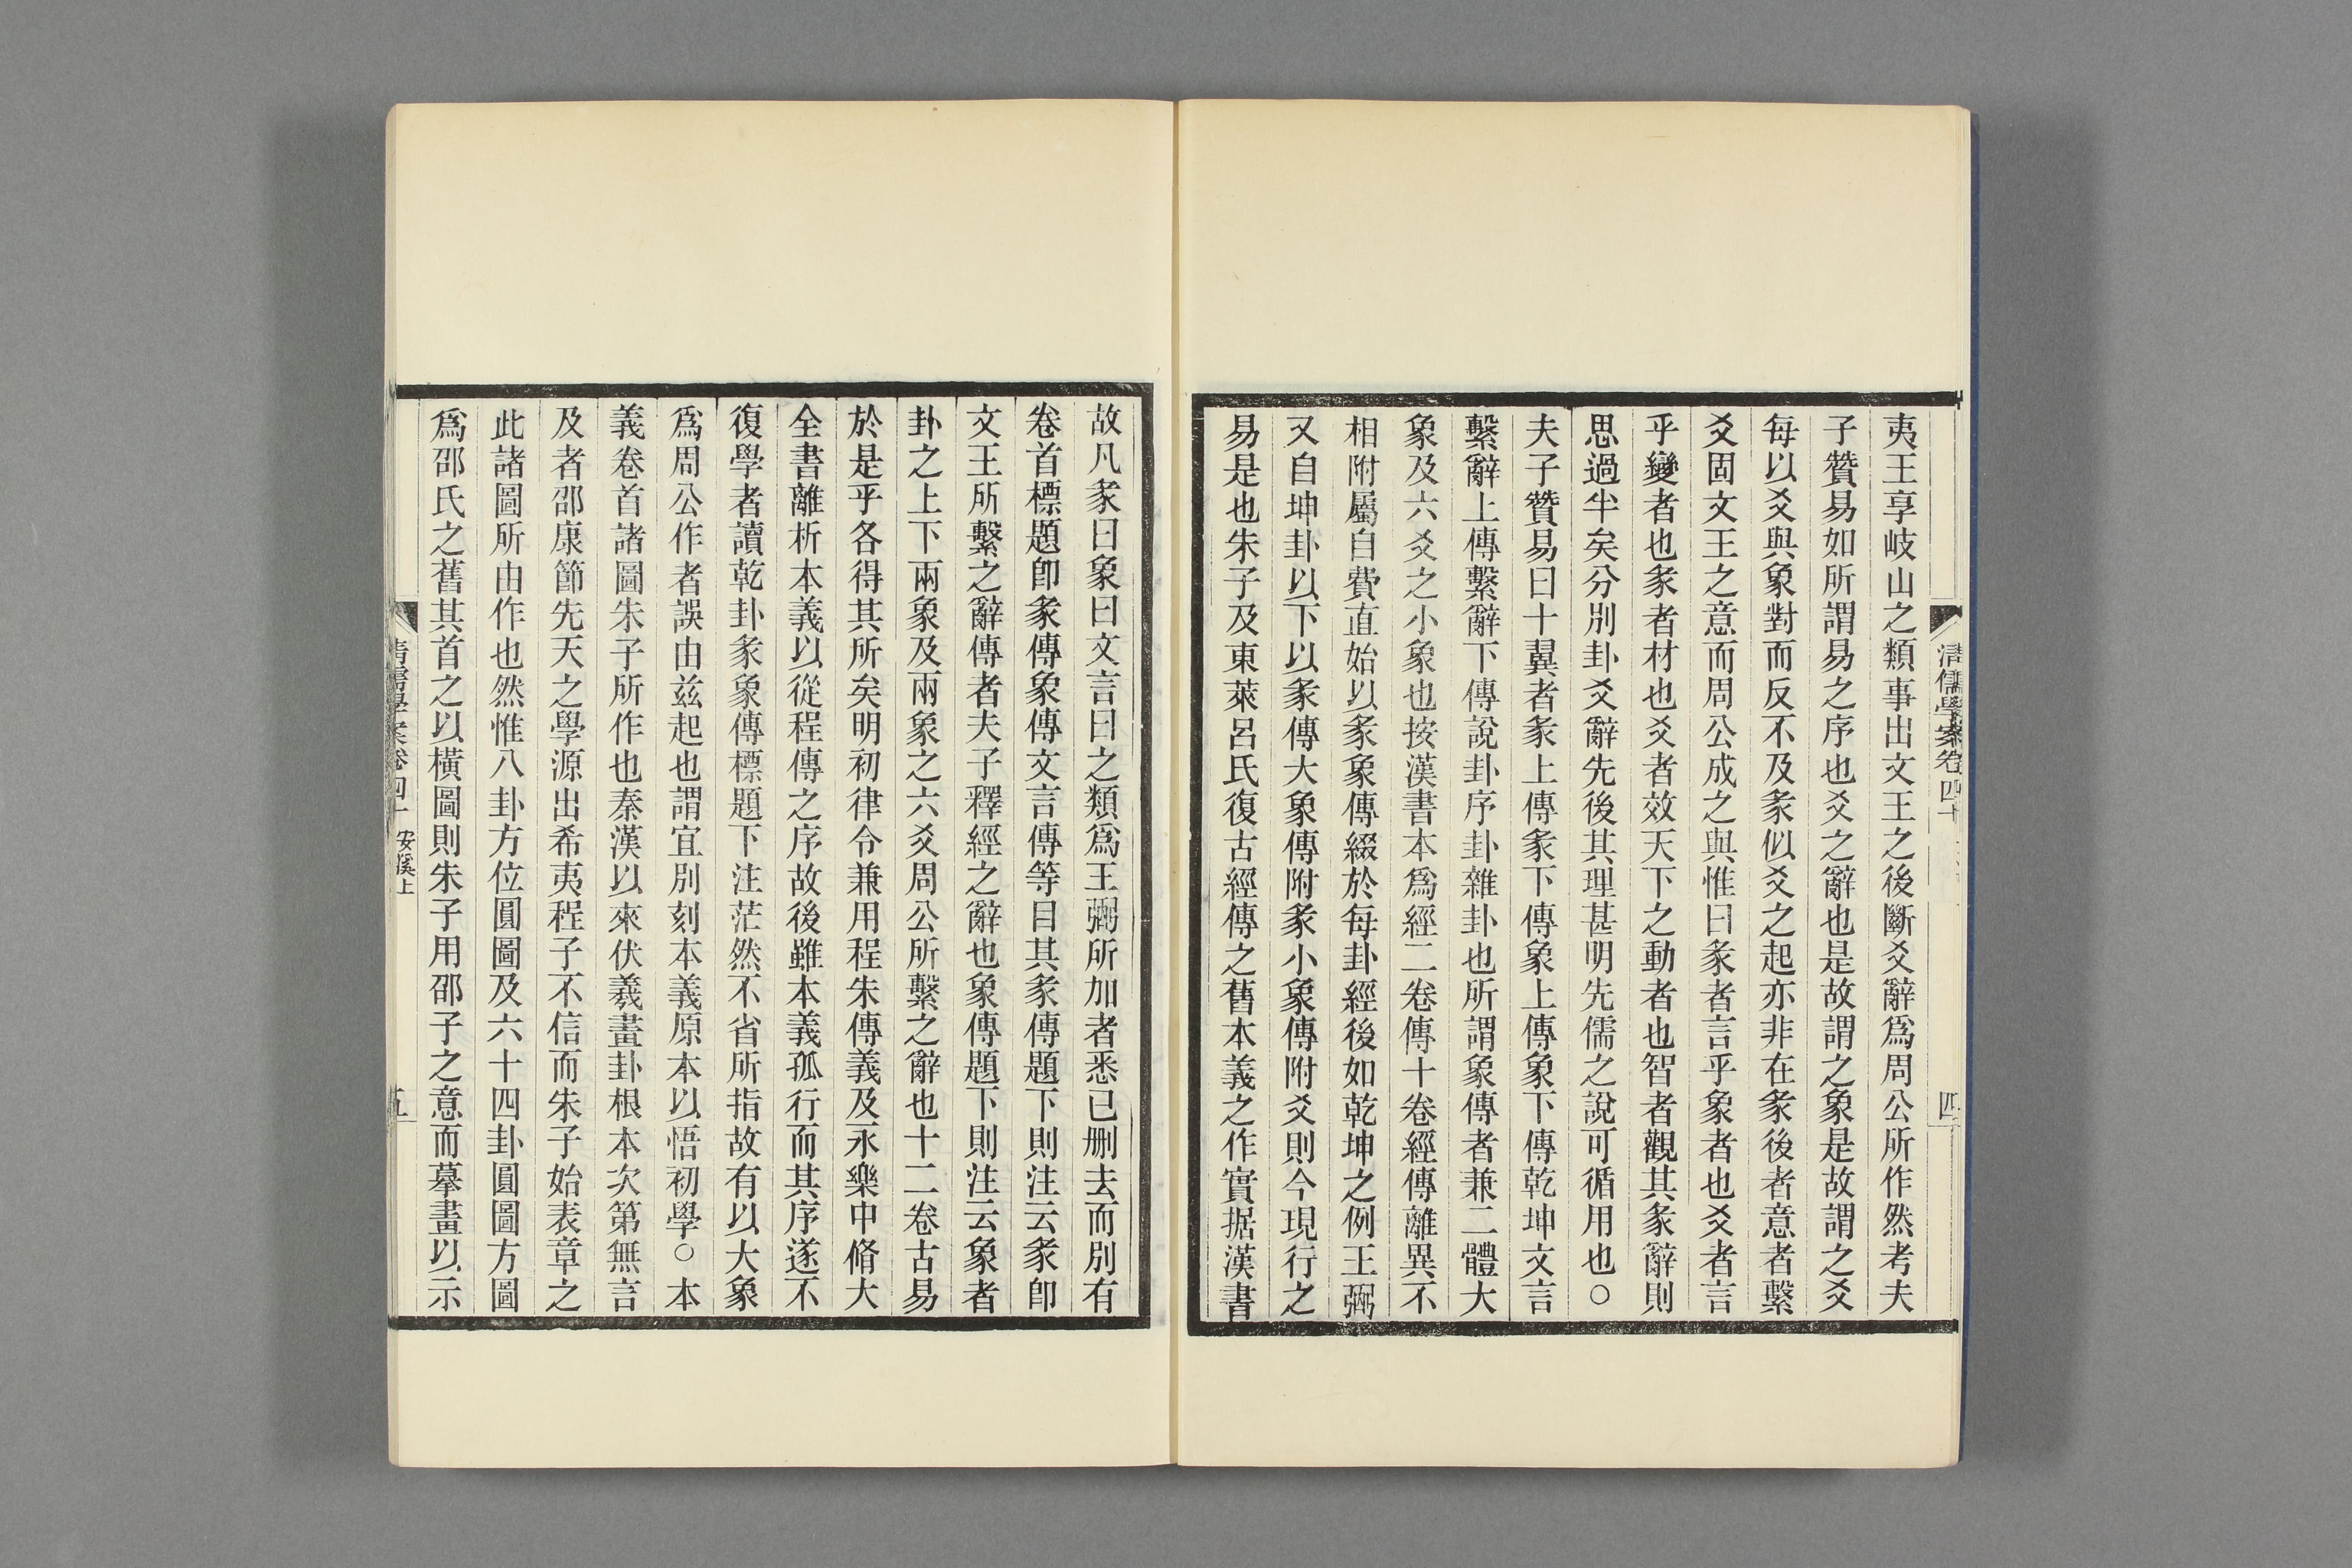 清儒學案卷四十
四
夷王享岐山之類事出文王之後斷爻辭爲周公所作然考夫
子贊易如所謂易之序也爻之辭也是故謂之象是故謂之爻
每以爻與象對而反不及彖似爻之起亦非在彖後者意者繫
爻固文王之意而周公成之與惟曰彖者言乎象者也爻者言
乎變者也彖者材也爻者效天下之動者也智者觀其彖辭則
思過半矣分別卦爻辭先後其理甚明先儒之說可循用也○
夫子贊易曰十翼者彖上傳彖下傳象上傳象下傳乾坤文言
繫辭上傳繫辭下傳說卦序卦雜卦也所謂象傳者兼二體大
象及六爻之小象也按漢書本爲經二卷傳十卷經傳離異不
相附屬自費直始以彖象傳綴於每卦經後如乾坤之例王弼
又自坤卦以下以彖傳大象傳附彖小象傳附爻則今現行之
易是也朱子及東萊呂氏復古經傳之舊本義之作實据漢書
故凡彖曰象曰文言曰之類爲王弼所加者悉已删去而別有
卷首標題卽彖傳象傳文言傳等目其彖傳題下則注云彖卽
文王所繫之辭傳者夫子釋經之辭也象傳題下則注云象者
卦之上下兩象及兩象之六爻周公所繫之辭也十二卷古易
於是乎各得其所矣明初律令兼用程朱傳義及永樂中脩大
全書離析本義以從程傳之序故後雖本義孤行而其序遂不
復學者讀乾卦彖象傳標題下注茫然不省所指故有以大象
爲周公作者誤由兹起也謂宜別刻本義原本以悟初學○本
義卷首諸圖朱子所作也秦漢以來伏羲畫卦根本次第無言
及者邵康節先天之學源出希夷程子不信而朱子始表章之
此諸圖所由作也然惟八卦方位圓圖及六十四卦圓圖方圖
爲邵氏之舊其首之以橫圖則朱子用邵子之意而摹畫以示
清儒學案卷四十 安溪上
五